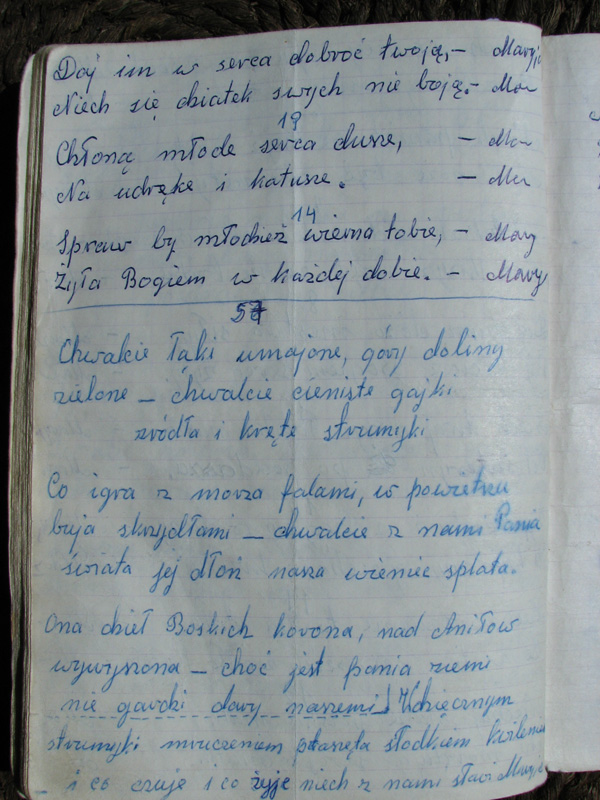 Daj im w serca dobroć twoją, - Maryjo
Niech się dziatek swych nie boją. - Ma
19
Chłoną młode serca dusze, - Ma
Na udrękę i katusze. - Ma
14
Spraw by młodzież wierna tobie, - Mary
Żyła Bogiem w każdej dobie. - Mary
57
Chwalcie łąki umajone, góry doliny
zielone - chwalcie cieniste gajki
źródła i kręte strumyki
Co igra z morza falami, w powietrzu
buja skrzydłami - chwalcie z nami Pania
świata jej dłoń nasza wieniec splata.
Ona dzieł Boskich korona, nad Aniłow
wywyszona - choć jest pania ziemi
nie gardzi dary naszemi! Wdzięcznym
strumyki mruczeniem ptaszęta słodkiem kwileniem
- i co czuje i co żyje niech z nami sławi Maryje